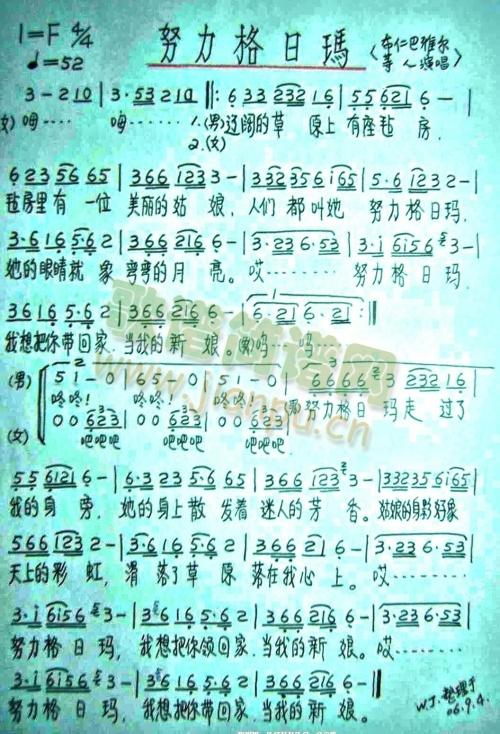 1=F 4/4
♩=52
努力格日瑪
〈布仁巴雅尔
等人演唱〉
3-210|3·53210|‖:633323216|556216-|
(女) 呣…… 呣…… 1.(男)辽阔的草 原上有座毡 房,
2.(女)
6235665|3661233-|33235616165|5·61232-|
毡房里有一位 美丽的姑 娘,人们 都叫她 努力格日玛,
3·6165·62|3662166-|3·236·53|3·i615653-|
她的眼睛就 象 弯弯的月 亮。哎……… 努力格日玛,
36165·62|3662166-|6·216·21:‖
我想把你带回家,当我的新 娘。(男)呜… 呜…
(男) 51-0|65-0|51-0|6666323216|
咚咚! 咚咚! 咚咚! (男)努力格日 玛走 过了
(女) 00623|00623|00623
吧吧吧 吧吧吧 吧吧吧
5561216-|6·3235·665|3661233-|33235616165|
我的身 旁, 她的身上散 发着 迷人的芳 香。姑娘的身影好象
5661232-|3·6165·62|366216-|3·236·53|
天上的彩 虹, 滑 落了草原 落在我心 上。哎………
3·i615653-|36165·62|3662166-|3·236·53|
努力格 日 玛, 我想把你领回家,当我的新 娘。哎………
3·i615653-|36165·62|3662166-|
努力格 日 玛, 我想把你带回家,当我的新 娘。
W.J.整理于
06.9.4.
歌谱简谱网
www.jianpu.cn